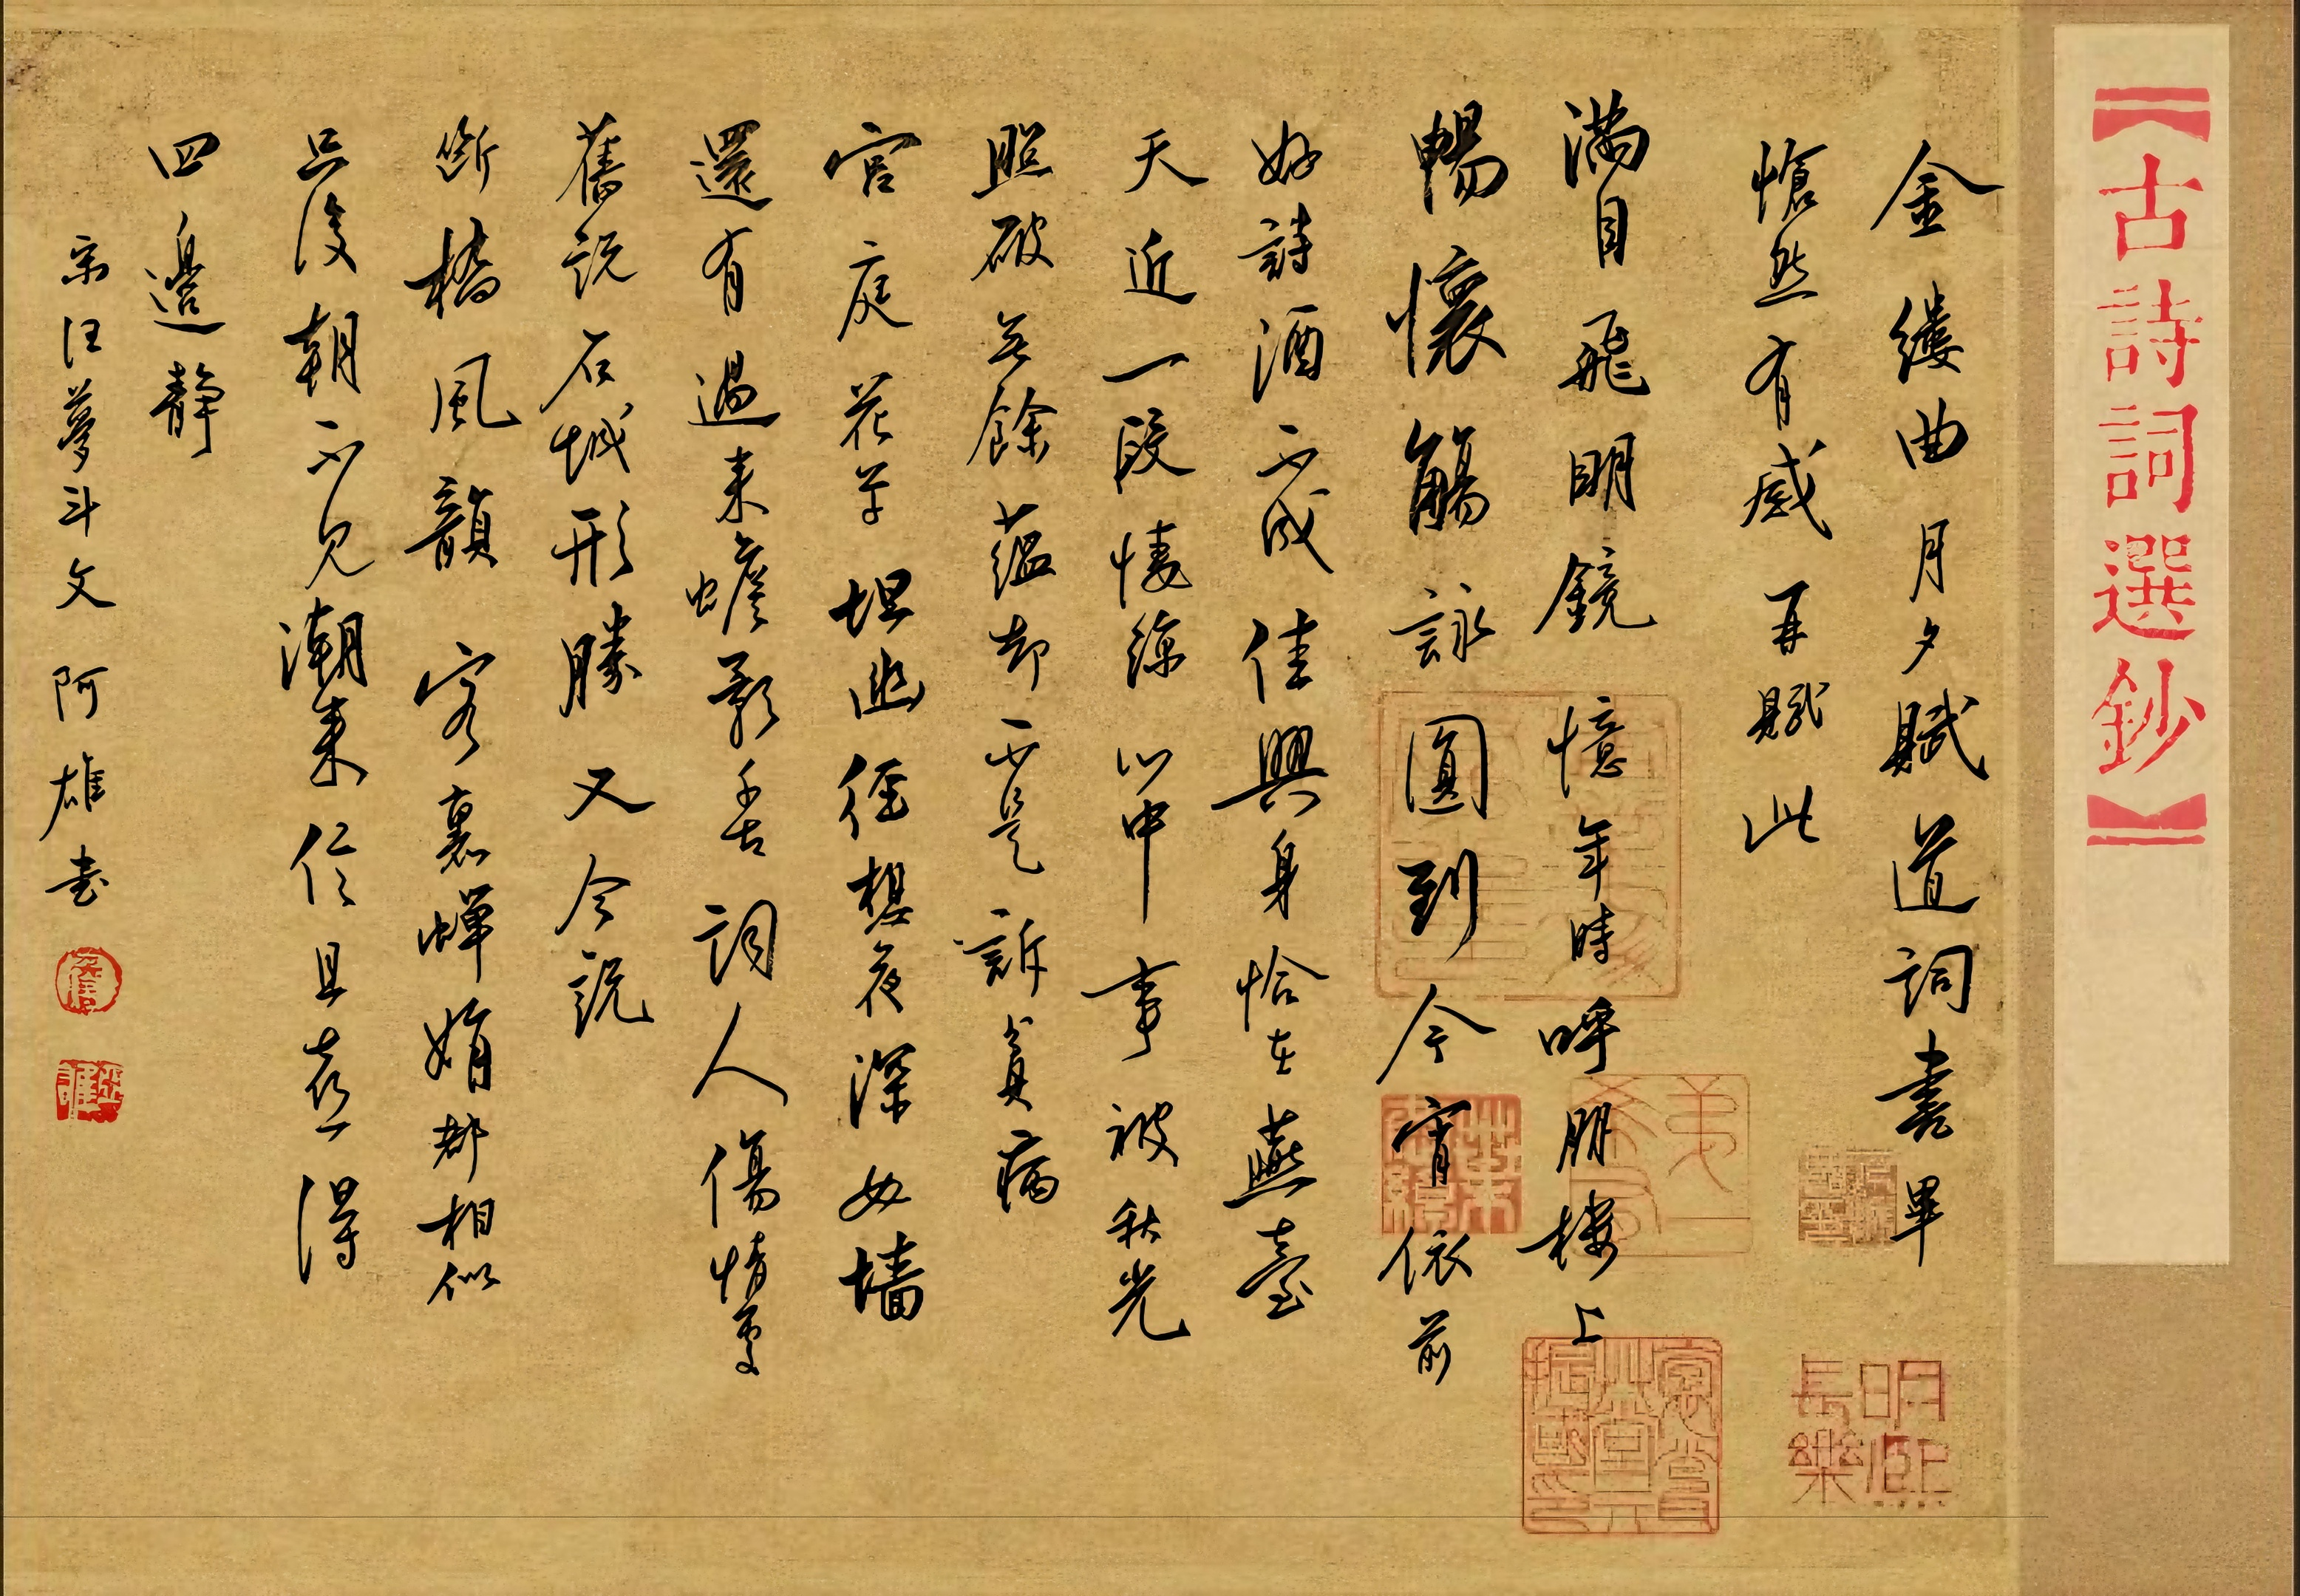 【古詩詞選鈔】
金縷曲月夕賦道詞書畢
愴然有感再賦此
滿目飛明鏡憶年時呼朋樓上
暢懷觴詠圓到今宵依前
好詩酒不成佳興身恰在燕臺
天近一段悽涼心中事被秋光
照破無餘蘊却不是訴貧病
宮庭花草埋幽徑想夜深女墻
還有過來蟾影千古詞人傷情處
舊說石城形勝又今說
斷橋風韻客裏蟬娟都相似
只後朝不見潮來信且喜得
四邊靜
宋汪夢斗文 阿雄書
明熙長樂